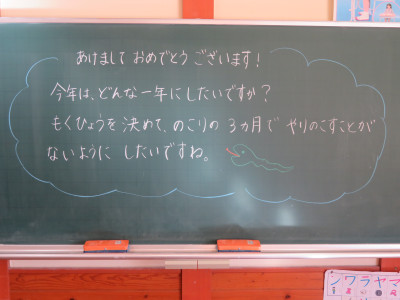 あけまして おめでとう ございます！
今年は、どんな一年にしたいですか？
もくひょうを 決めて、のこりの ３ヵ月で やりのこすことが
ないように したいですね。
ンワラヤマ